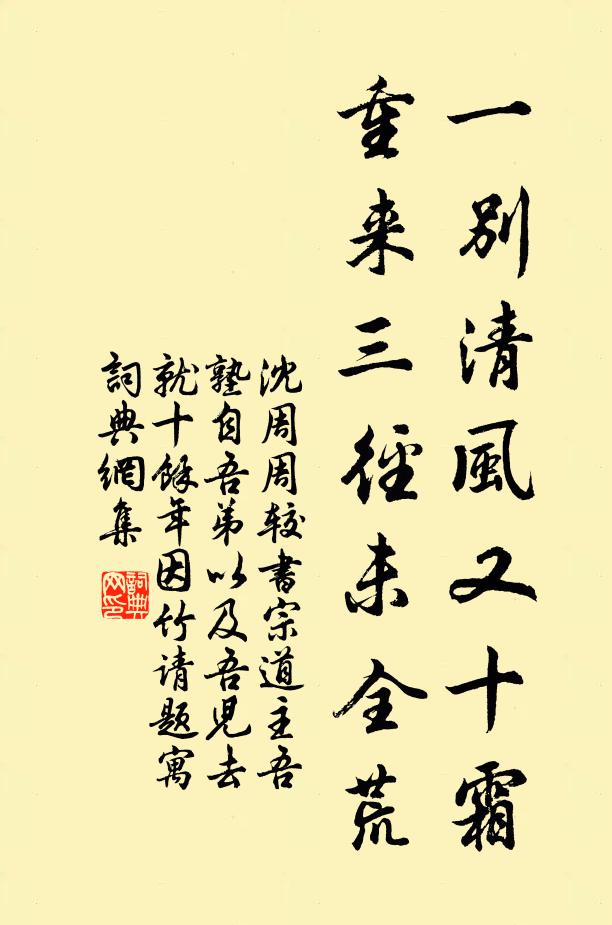 一别清風又十霜
重来三徑未全荒
沈周周较書宗道主吾
塾自吾弟以及吾児去
就十餘年因竹请题寓
詞典網集
詞典
网印